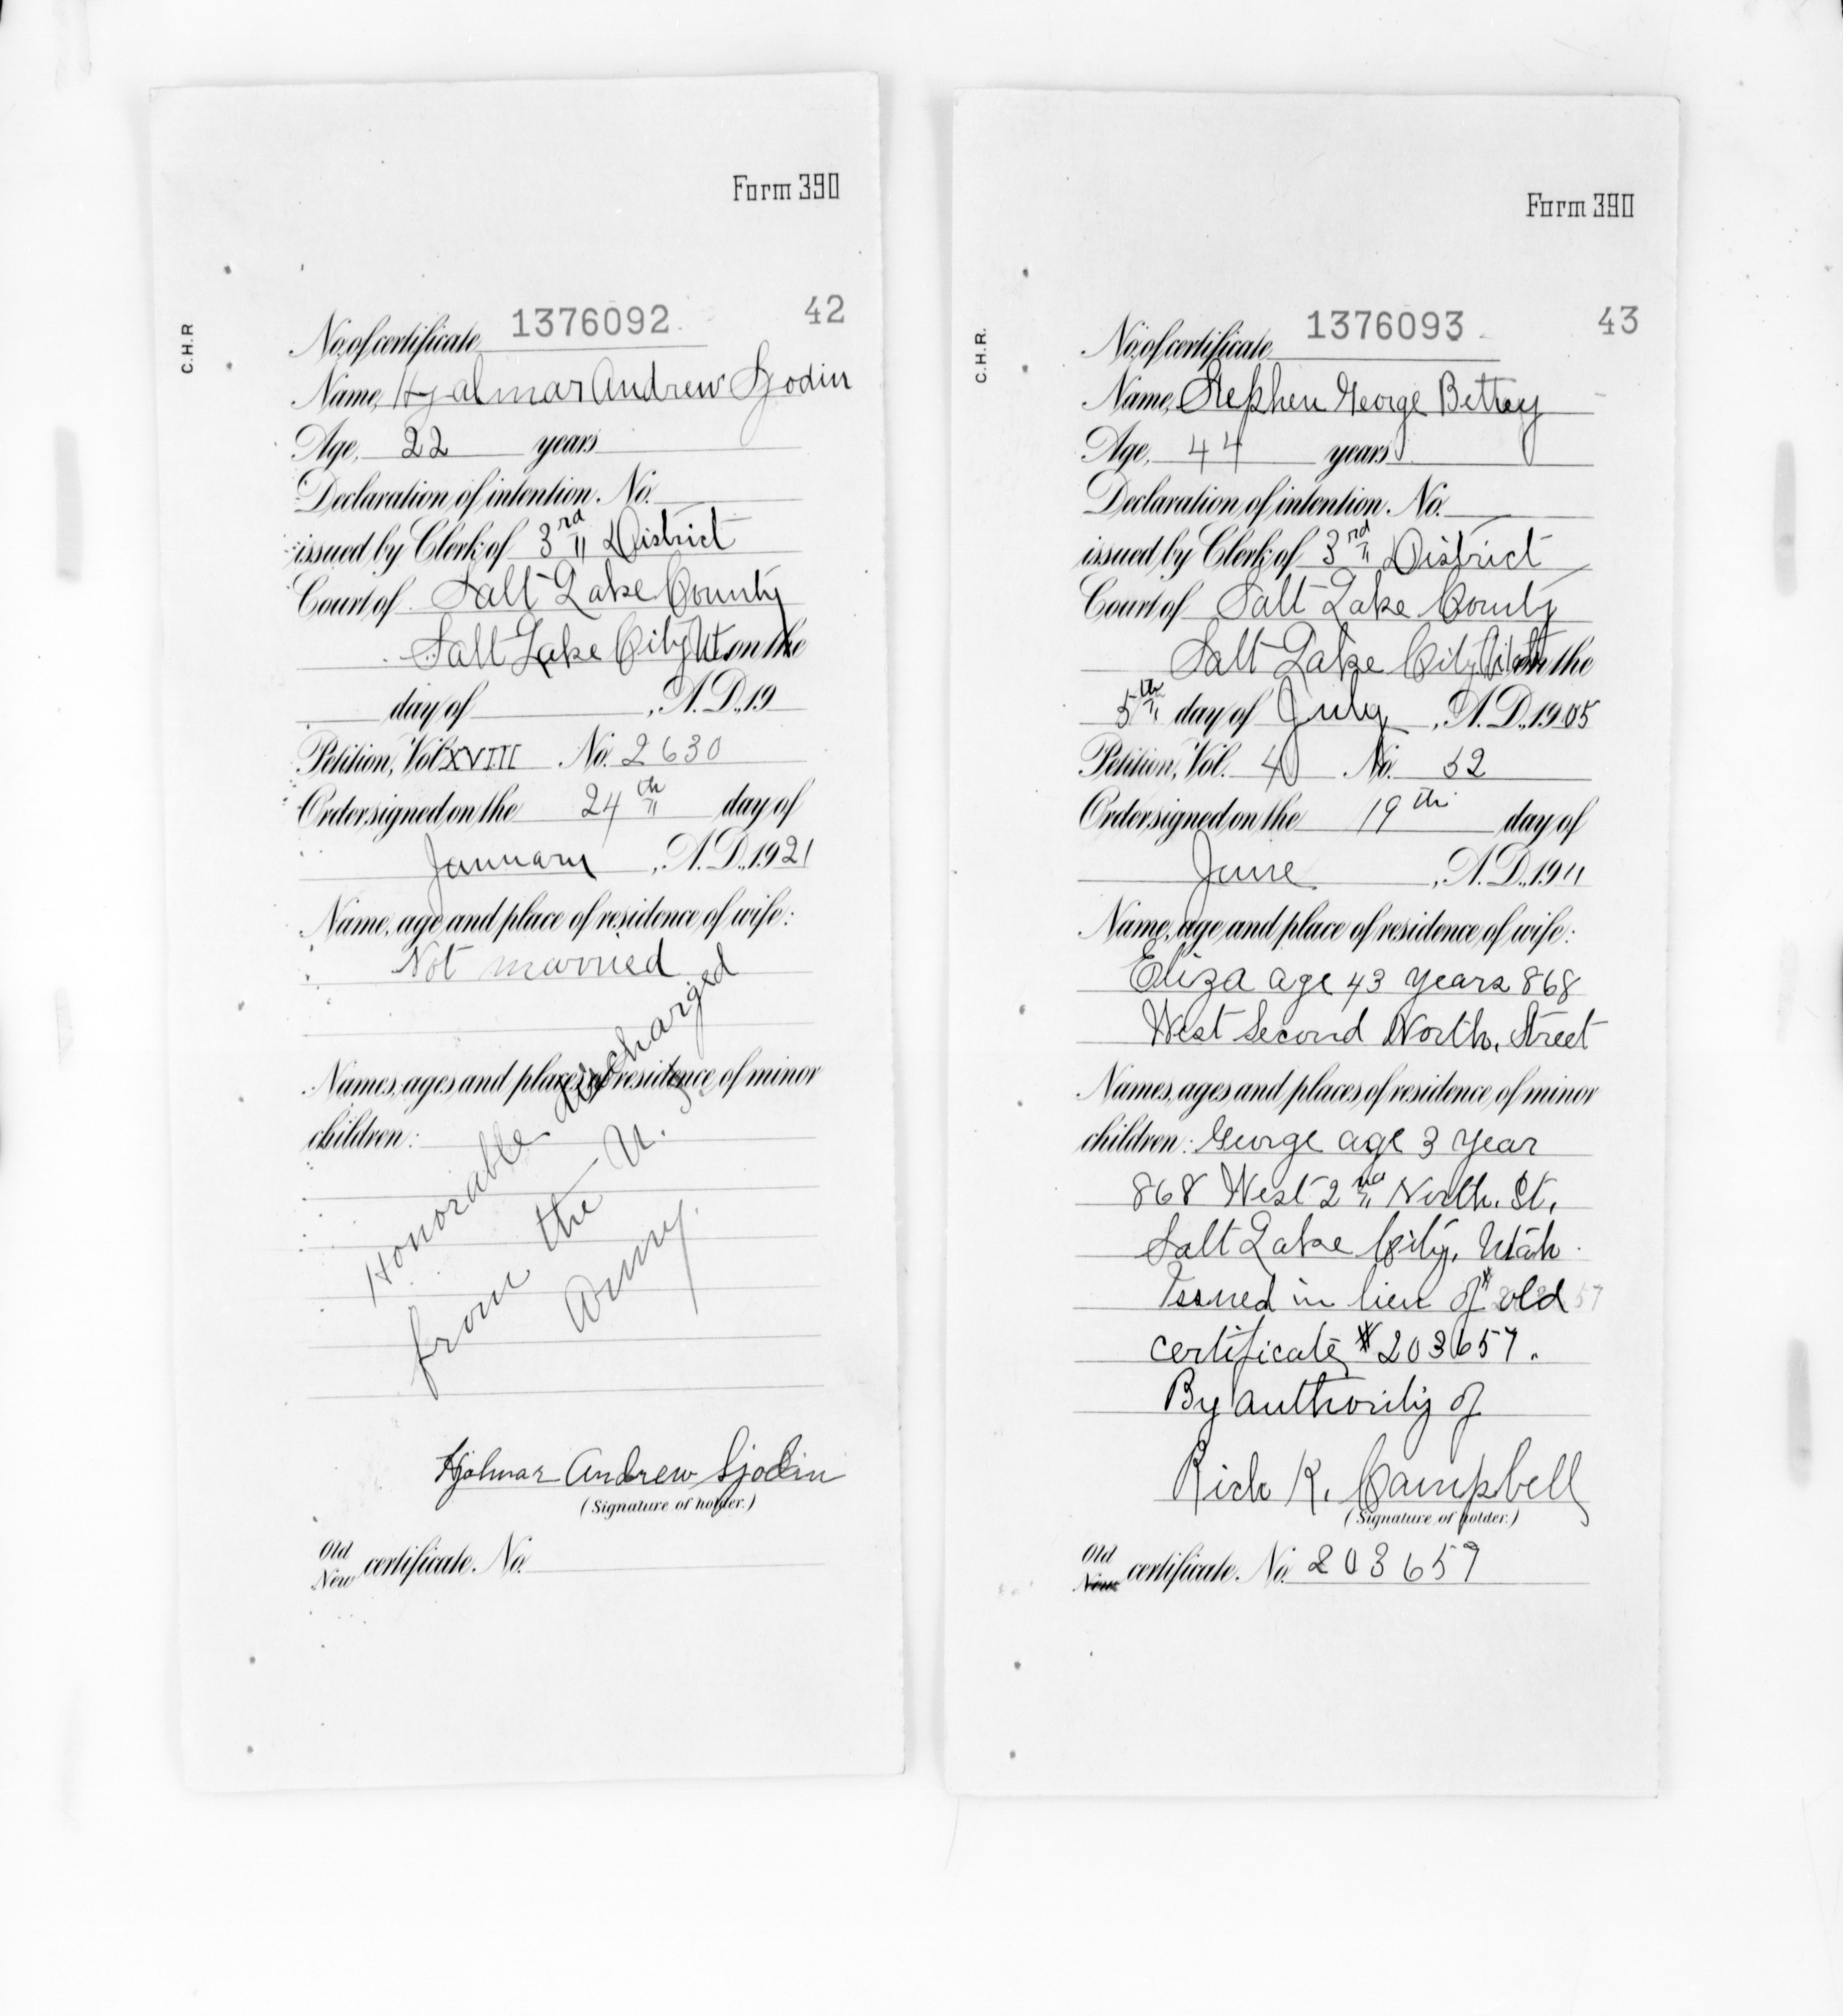 Form 390
C.H.R
No. of certificate 1376092 42
Name, Hjalmar Andrew Sjodin
Age, 22 years
Declaration of intention. No.
issued by Clerk of 3rd District
Court of Salt Lake County
Salt Lake City Ut on the
day of , A.D., 19
Petition, Vol. XVIII No. 2630
Order signed on the 24th day of
January , A.D., 1921
Name, age and place of residence of wife:
Not married
Names, ages and places of residence of minor
children:
Honorable discharged
from the U. S.
Army.
Hjalmar Andrew Sjodin
(Signature of holder.)
Old
New certificate. No.
Form 390
C.H.R.
No. of certificate 1376093 43
Name, Stephen George Bettey
Age, 44 years
Declaration of intention. No.
issued by Clerk of 3rd District
Court of Salt Lake County
Salt Lake City Utah on the
5th day of July , A.D., 1905
Petition, Vol. 4 No. 52
Order signed on the 19th day of
June , A.D., 1911
Name, age and place of residence of wife:
Eliza age 43 years 868
West Second North, Street
Names, ages and places of residence of minor
children: George age 3 year
868 West 2nd North. St,
Salt Lake City, Utah.
Issued in lieu of old
certificate #203657.
By authority of
Rich K. Campbell
(Signature of holder.)
Old
New certificate. No. 203657